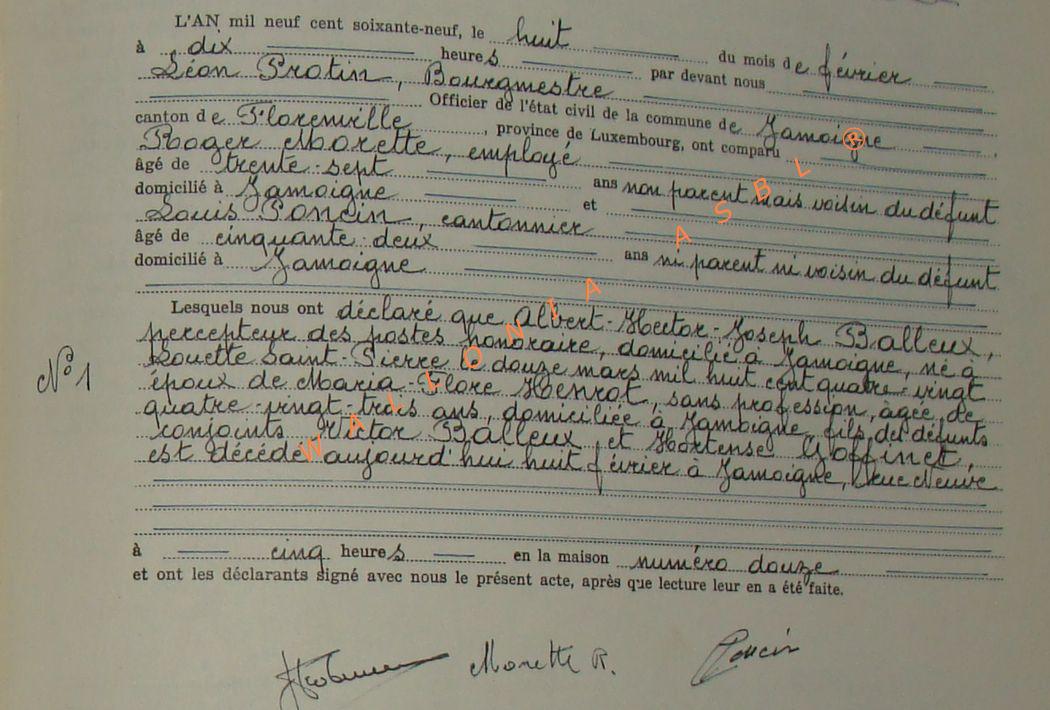 L'AN mil neuf cent soixante-neuf, le huit du mois de février
à dix heures par devant nous
Léon Protin, Bourgmestre
Officier de l'état civil de la commune de Jamoigne
canton de Florenville, province de Luxembourg, ont comparu
Roger Morette, employé
âgé de trente-sept ans non parent mais voisin du défunt
domicilié à Jamoigne et
Louis Poncin, cantonnier
âgé de cinquante-deux ans ni parent ni voisin du défunt
domicilié à Jamoigne
Lesquels nous ont déclaré que Albert-Hector-Joseph Balleux,
percepteur des postes honoraire, domicilié à Jamoigne, né à
Louette Saint-Pierre le douze mars mil huit cent quatre-vingt
époux de Maria-Flore Henrot, sans profession, âgée de
quatre-vingt-trois ans, domiciliée à Jamoigne fils des défunts
conjoints Victor Balleux et Hortense Goffinet,
est décédé aujourd'hui huit février à Jamoigne, rue Neuve
N° 1
à cinq heures en la maison numéro douze
et ont les déclarants signé avec nous le présent acte, après que lecture leur en a été faite.
Morette R. Poncin
WALLONIA ASBL ®